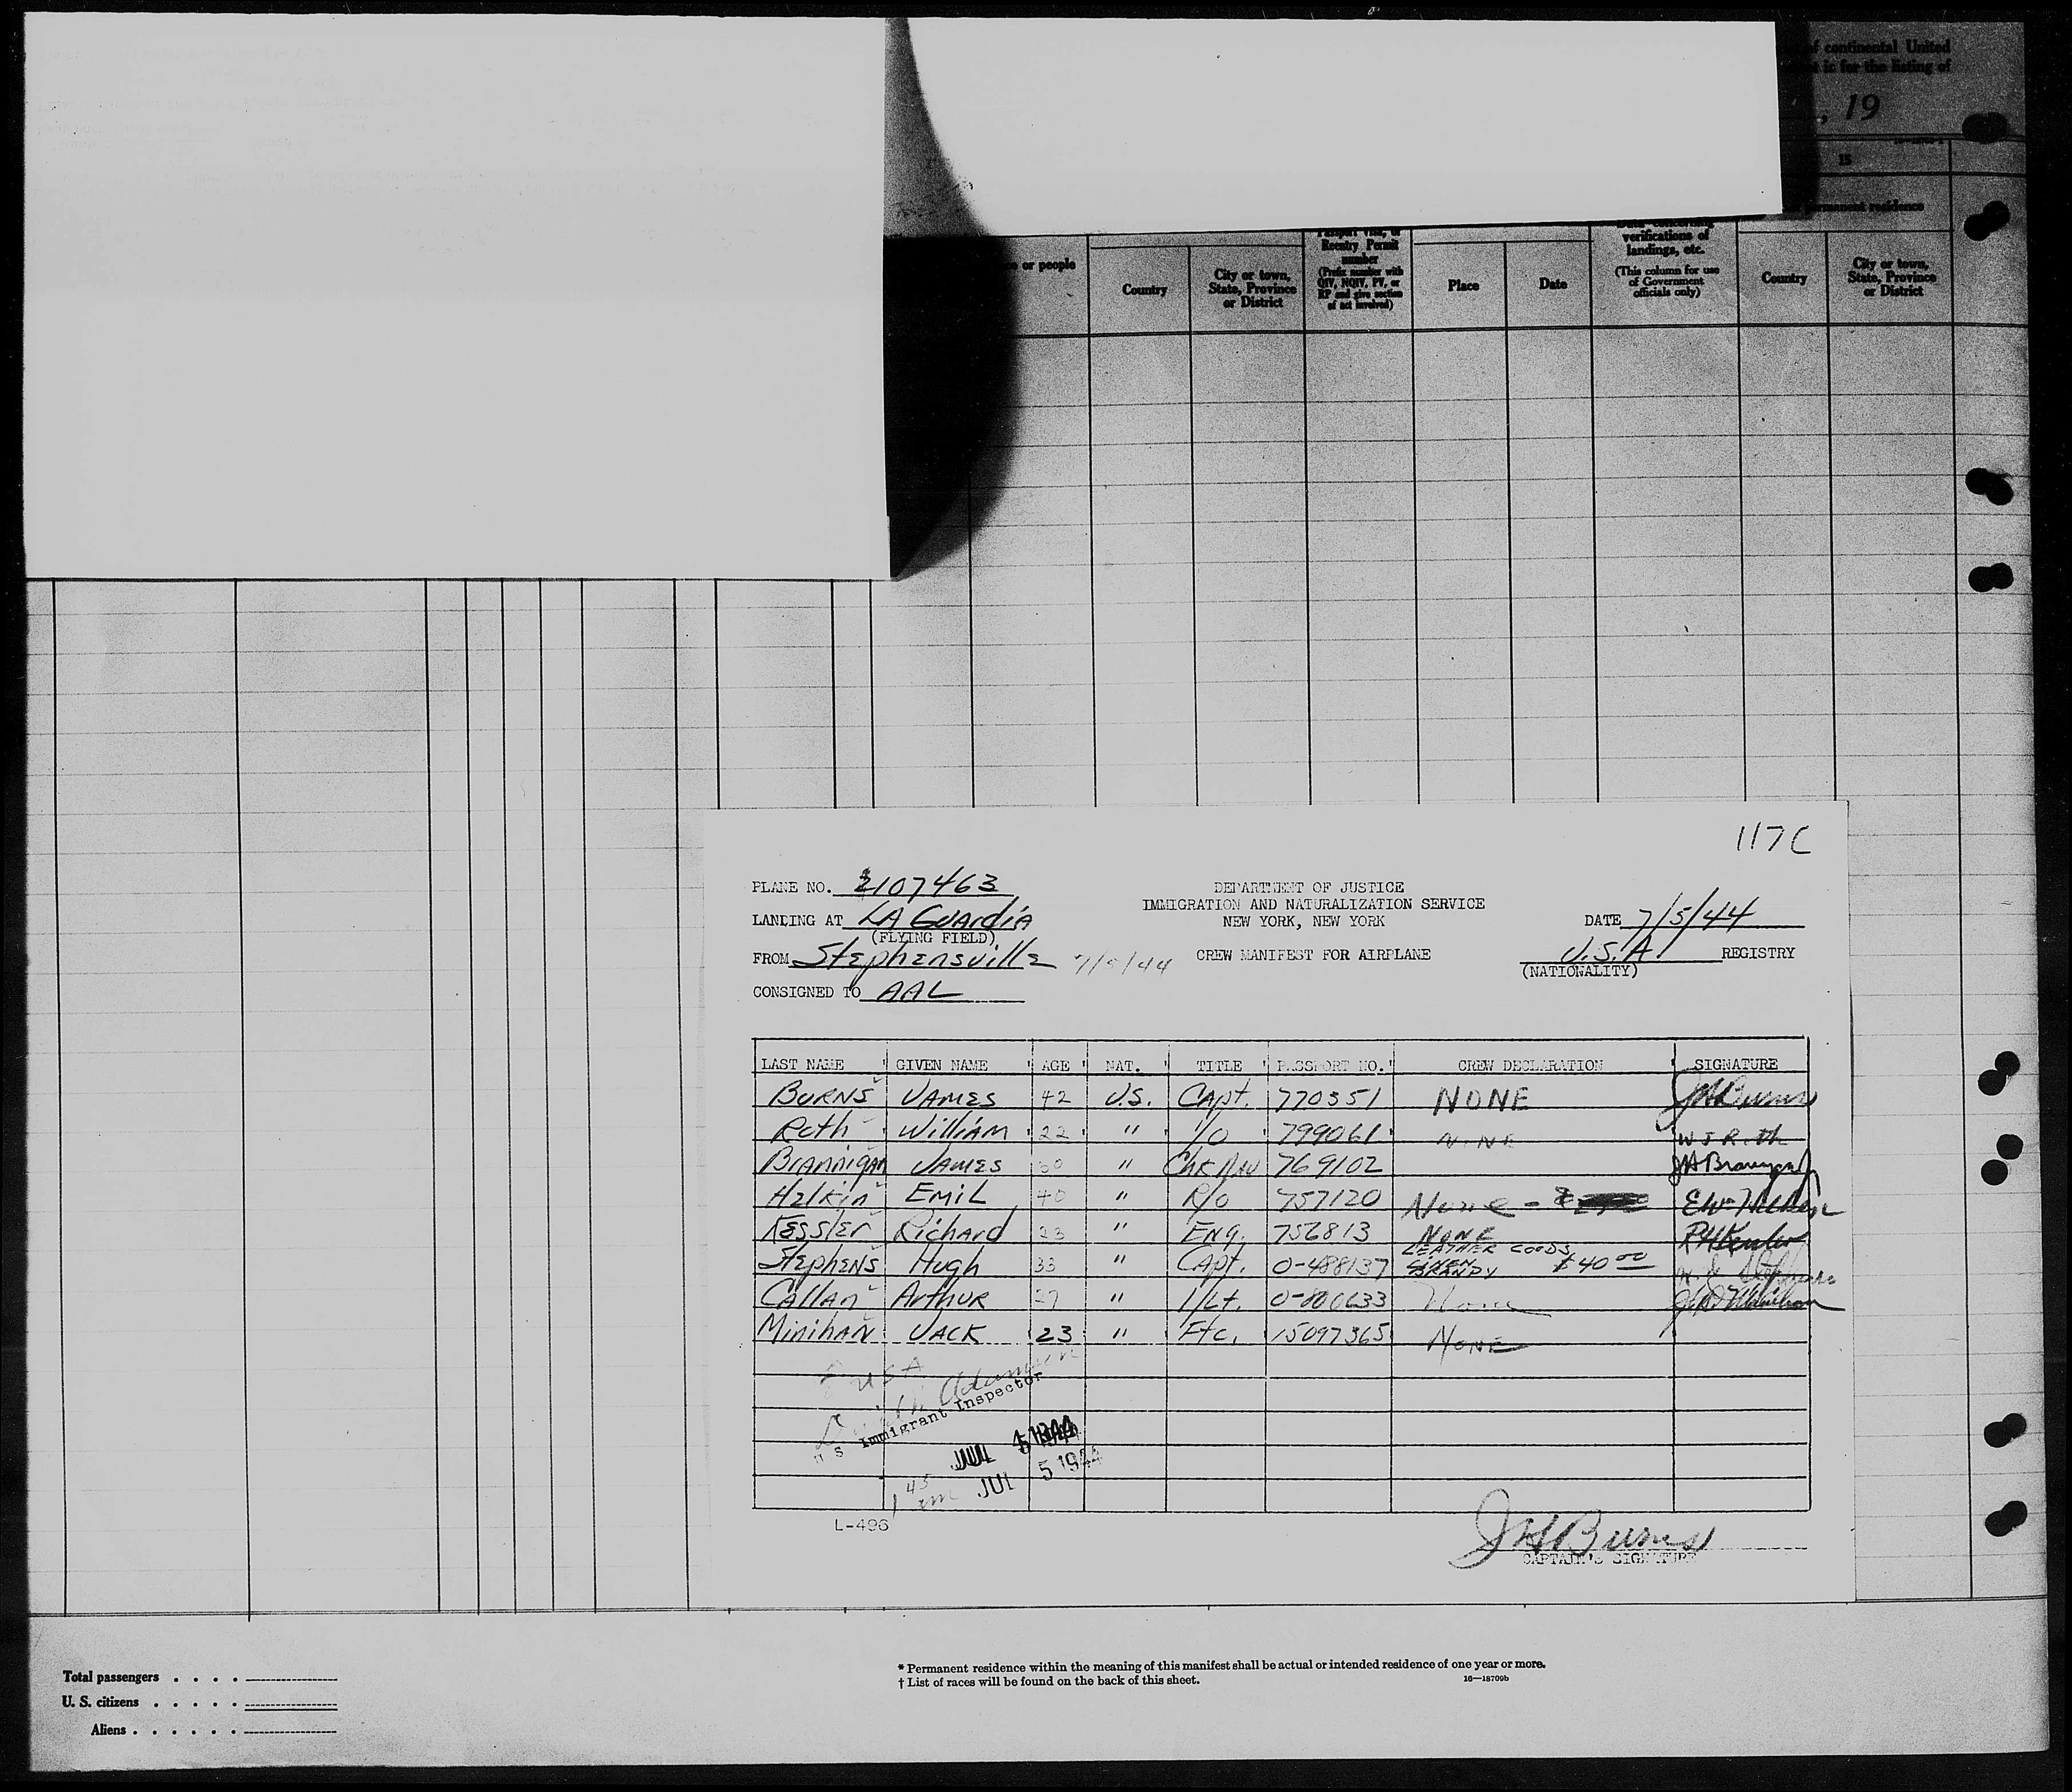 of continental United
ic for the listing of
, 19
15
permanent residence
or people
Country
City or town, State, Province or District
Reentry Permit number
(Prefix number with QIV, NQIV, PV, or RP and give section of act involved)
Place
Date
verifications of landings, etc.
(This column for use of Government officials only)
Country
City or town, State, Province or District
117C
PLANE NO. 2107463
DEPARTMENT OF JUSTICE
IMMIGRATION AND NATURALIZATION SERVICE
LANDING AT LA GUARDIA
NEW YORK, NEW YORK
DATE 7/5/44
(FLYING FIELD)
FROM Stephensville 7/5/44
CREW MANIFEST FOR AIRPLANE
U.S.A REGISTRY
(NATIONALITY)
CONSIGNED TO AAL
LAST NAME GIVEN NAME AGE NAT. TITLE PASSPORT NO. CREW DECLARATION SIGNATURE
BURNS JAMES 42 U.S. Capt. 770351 NONE JHBurns
Roth William 22 " 1/O 799061 NONE WJRoth
Brannigan JAMES 30 " Chk Nav 769102 JABrannigan
Halkin EMIL 40 " R/O 757120 None -
Kessler Richard 23 " ENg. 756813 NONE RHKessler
STEPHENS Hugh 33 " CApt. 0-488137 LEATHER GOODS LINEN BRANDY $40 00 H. J. Stephens
CAllAn ArthUR 27 " 1/Lt. None
MinihAN JACK 23 " F+c. 15097365 NONE
8 USA
U S Immigrant Inspector
JUL 5 1944
JUL 5 1944
1 45 am
L-496
JHBurns
CAPTAIN'S SIGNATURE
Total passengers . . . .
U. S. citizens . . . . .
Aliens . . . . . .
* Permanent residence within the meaning of this manifest shall be actual or intended residence of one year or more.
† List of races will be found on the back of this sheet.
16—18709b